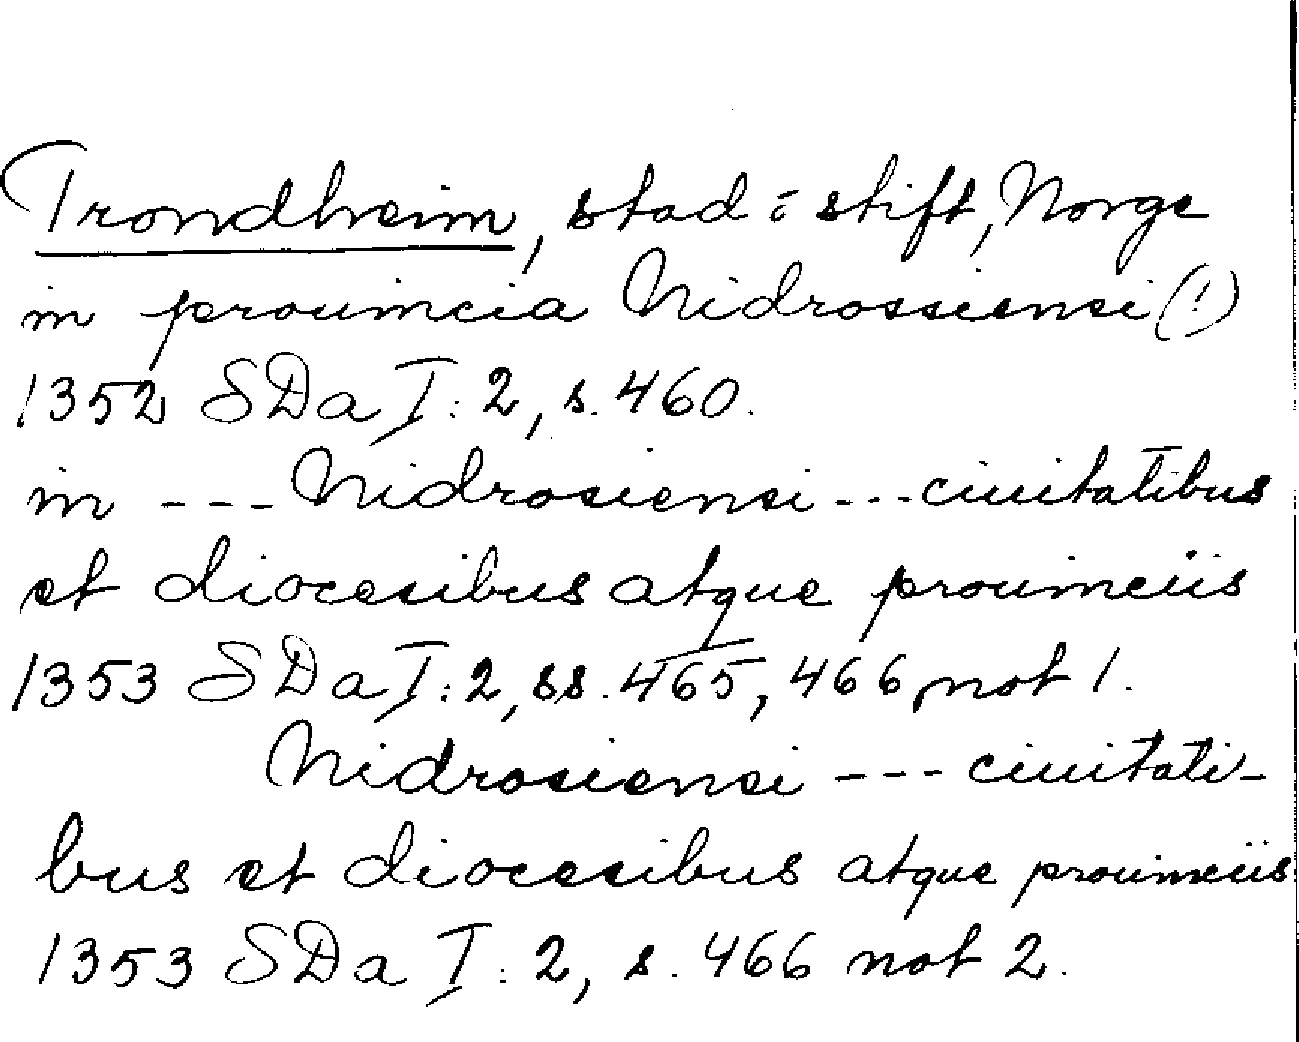 Trondheim, stad o stift, Norge
in prouincia Nidrossiensi (!)
1352 SDa I:2, s. 460.
in --- Nidrosiensi --- ciuitatibus
et diocesibus atque prouinciis
1353 SDa I:2, ss. 465, 466 not 1.
Nidrosiensi --- ciuitati-
bus et diocesibus atque prouinciis
1353 SDa I:2, s. 466 not 2.